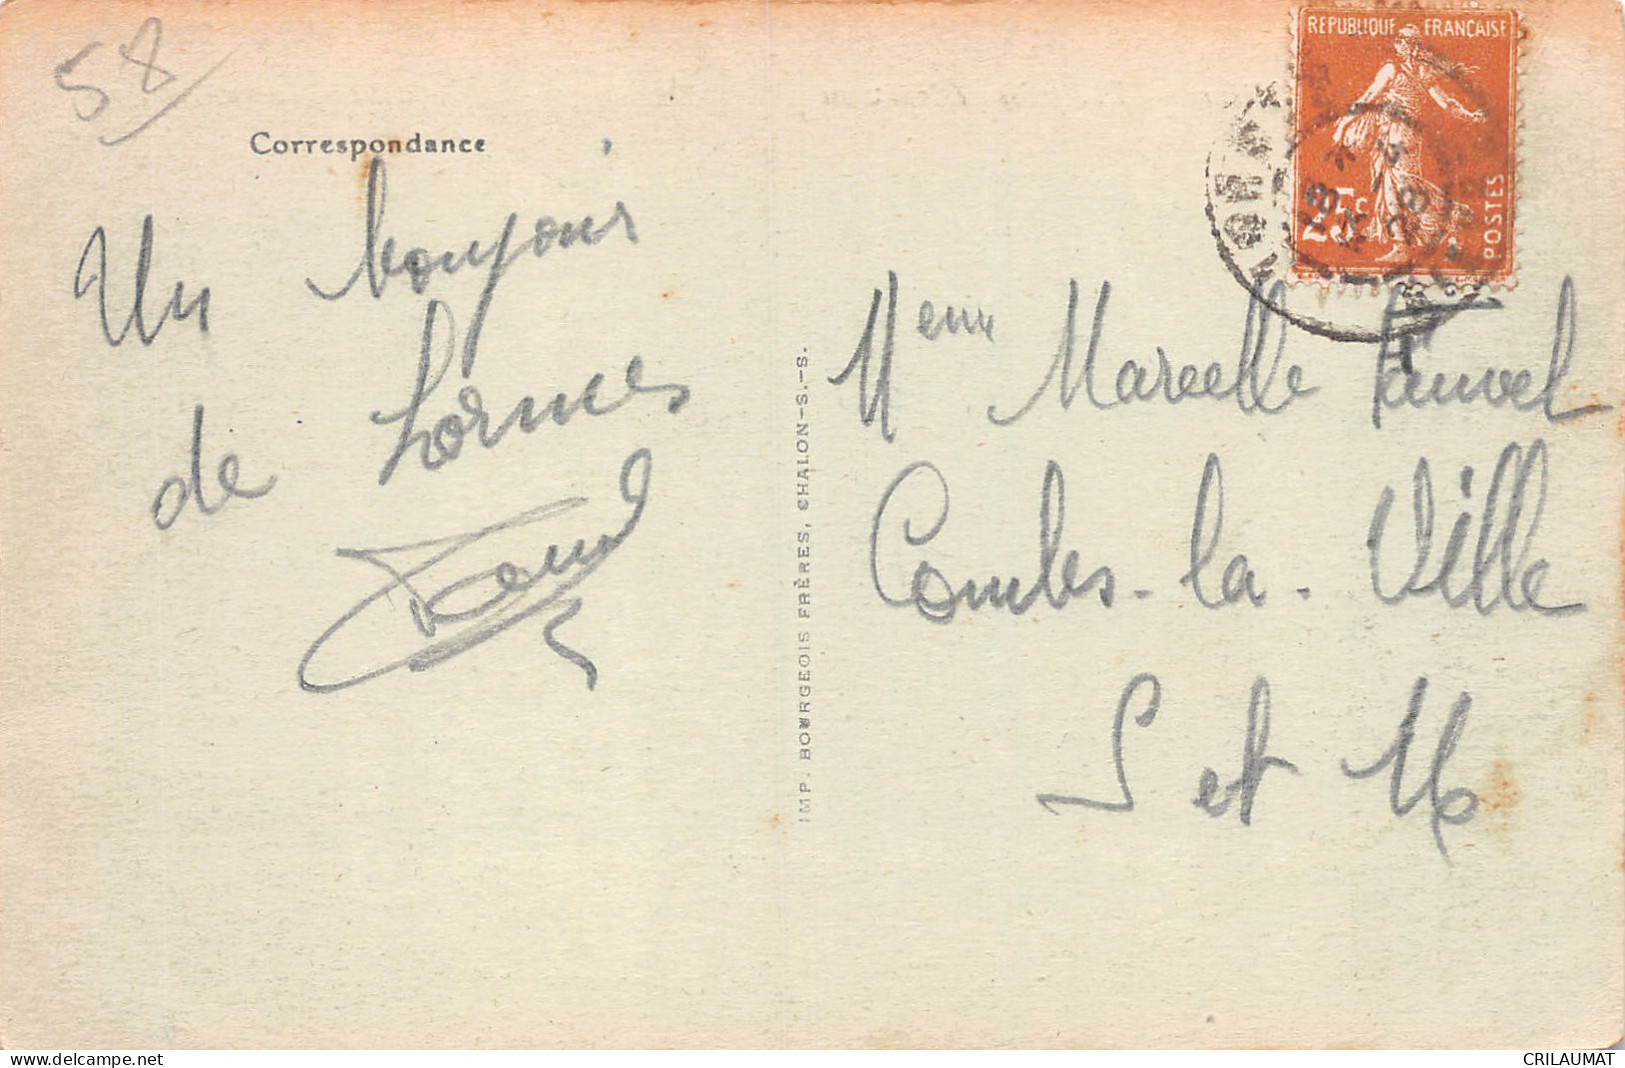 58
Correspondance
Un bonjour
de Lormes
IMP. BOURGEOIS FRÈRES, CHALON-S.-S.
REPUBLIQUE FRANÇAISE
25c
POSTES
Melle Marcelle Fauvel
Combs-la-Ville
S et M
www.delcampe.net
CRILAUMAT